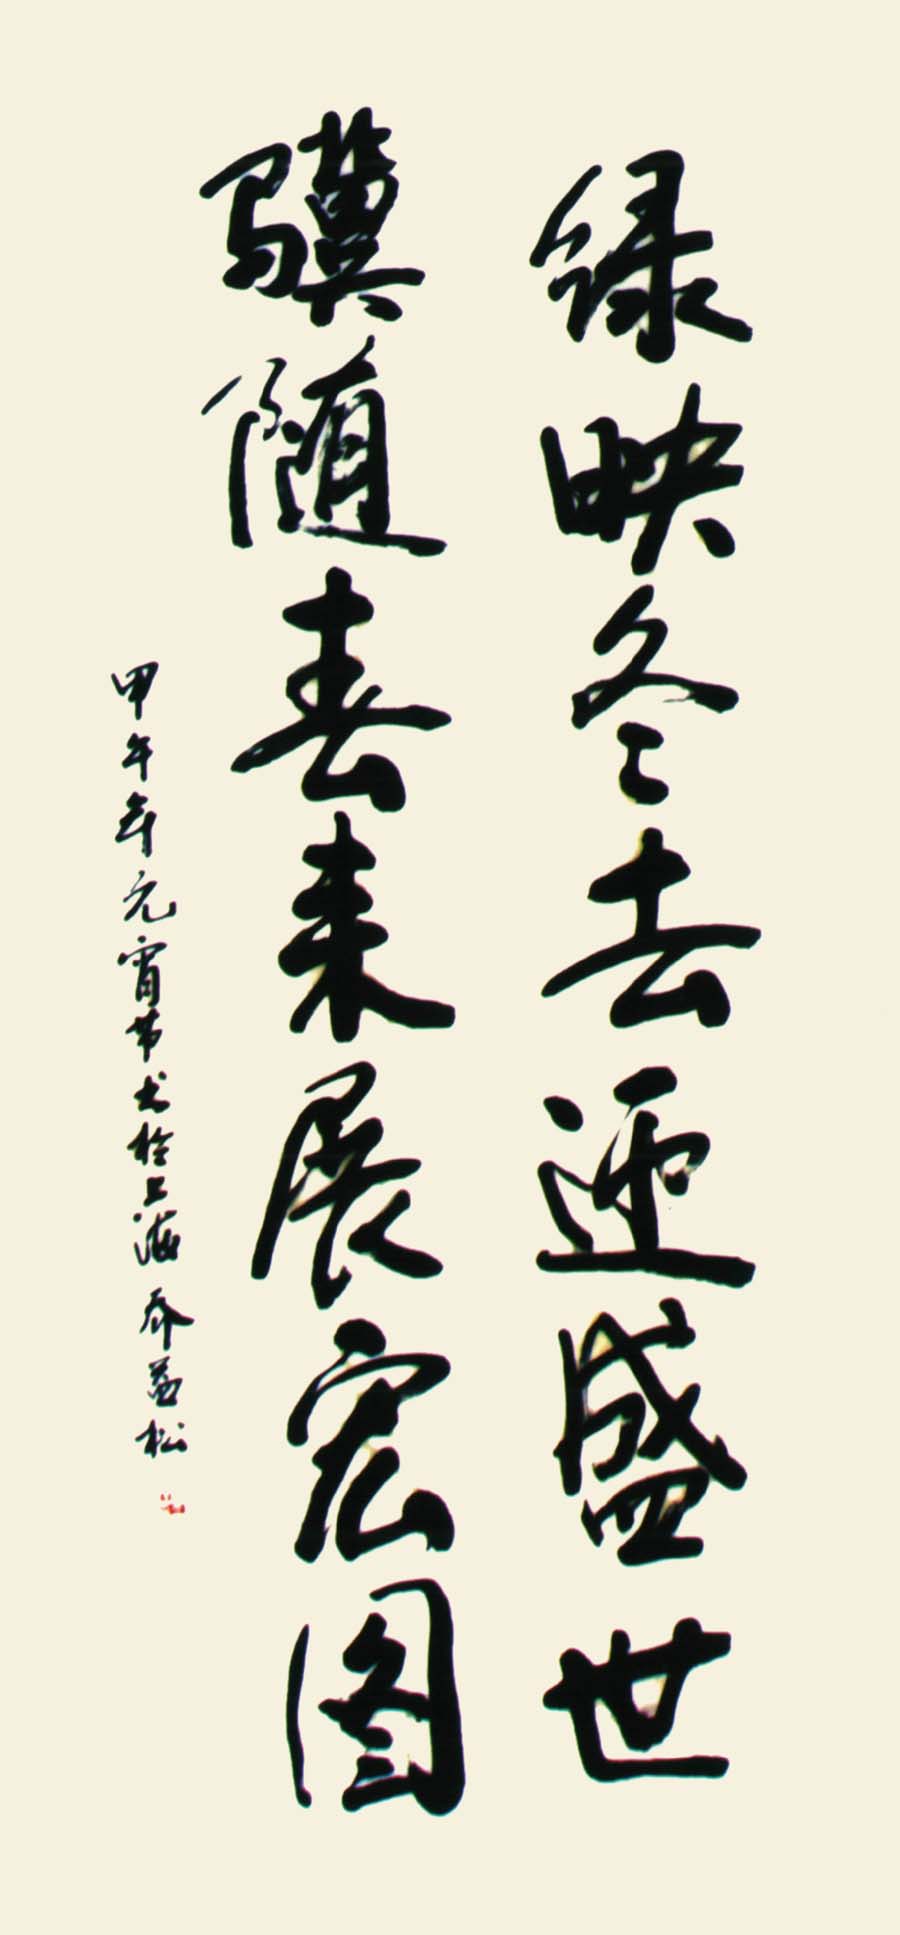 绿映冬去迎盛世
骥随春来展宏图
甲午年元宵节书於上海 乔益松